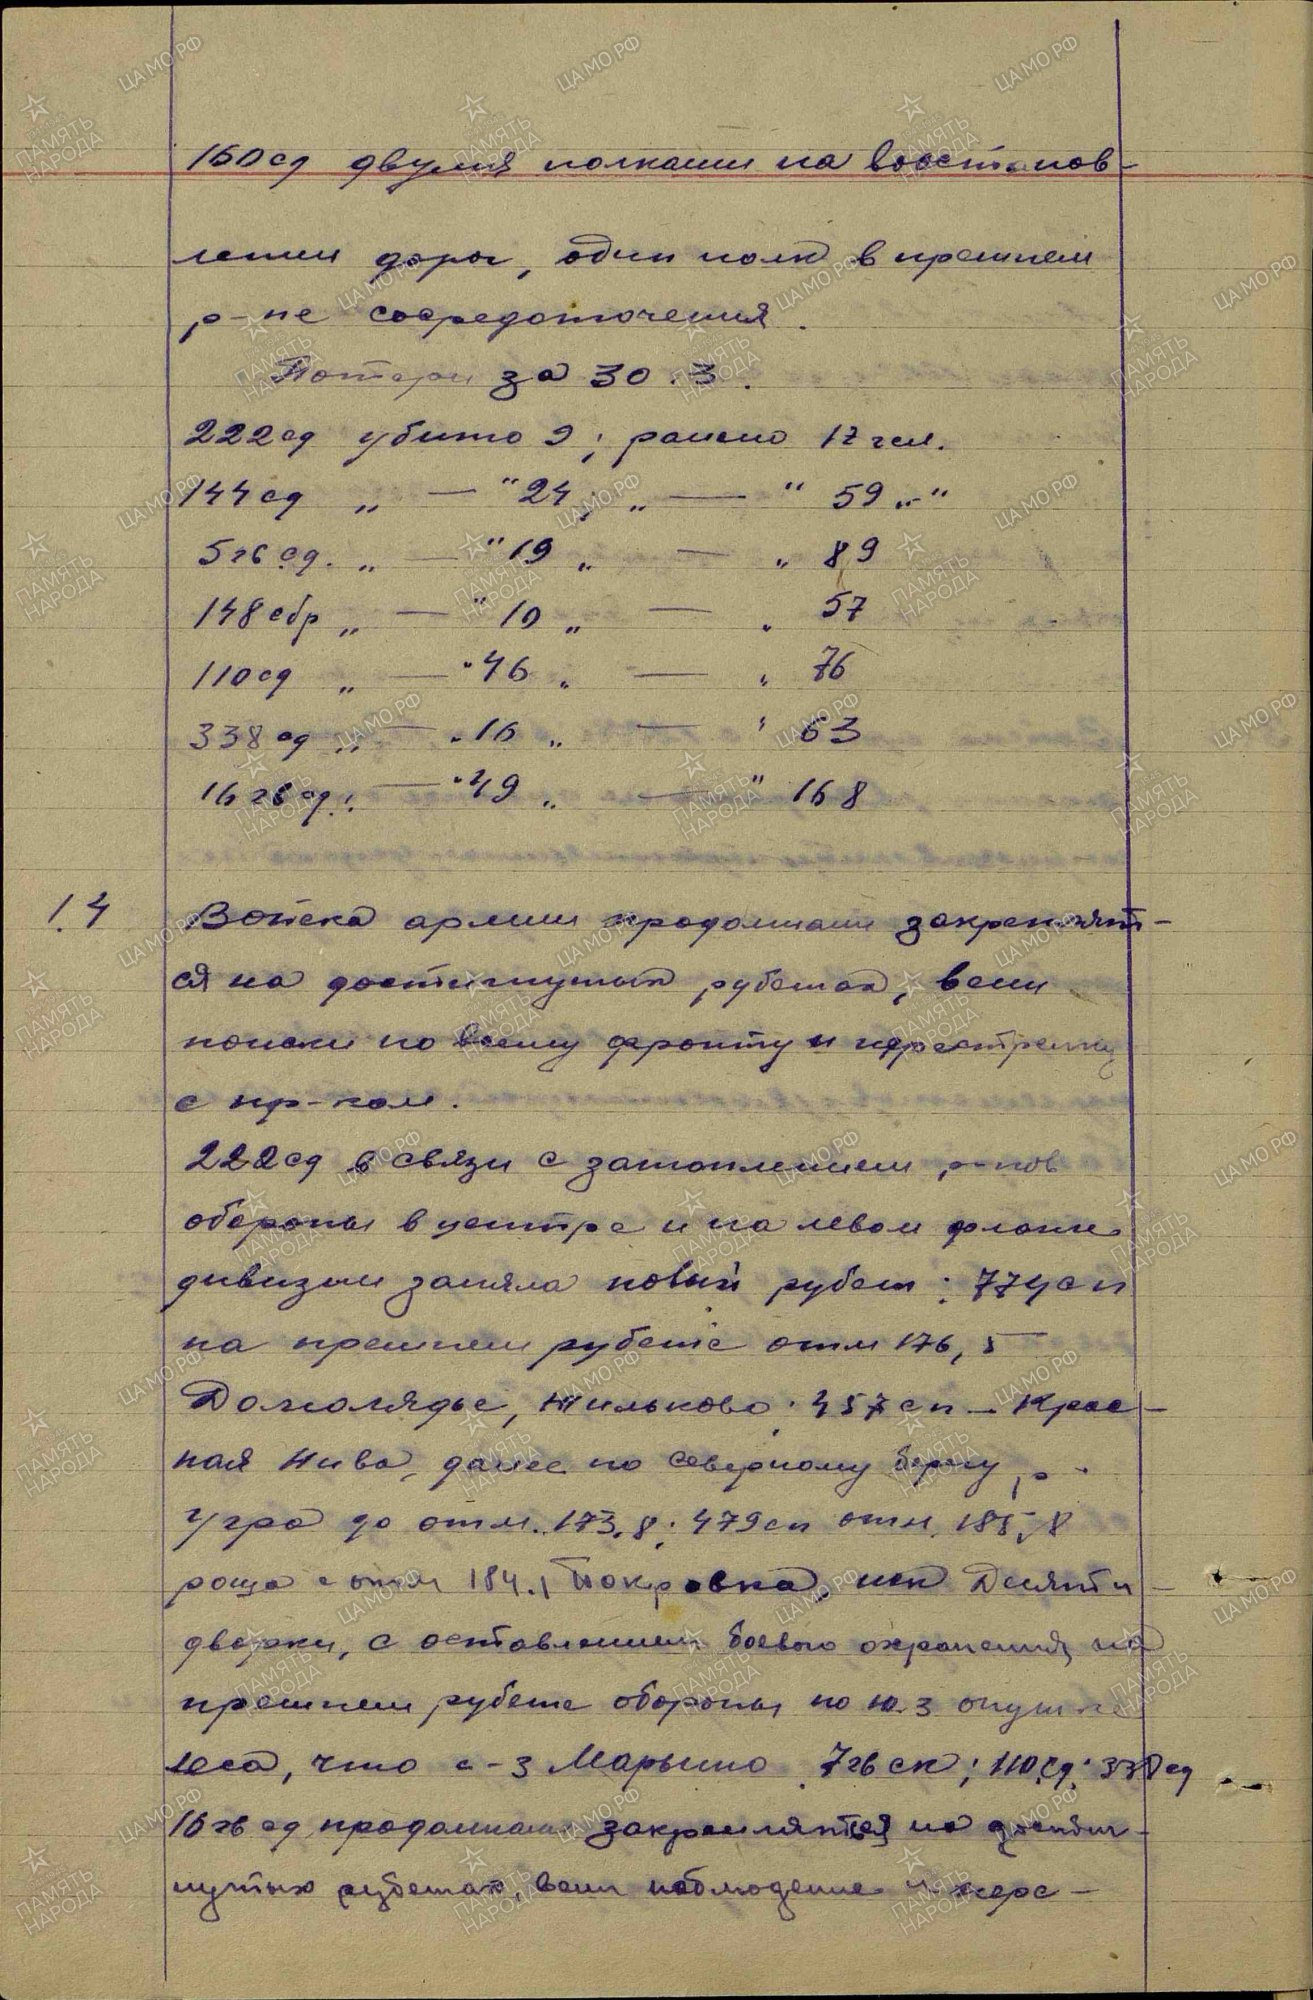 160 сд двумя полками на восстанов-
лении дорог, один полк в прежнем
р-не сосредоточения.
Потери за 30.3.
222 сд убито 9; ранено 17 чел.
144 сд „ — " 24; „ — " 59 „-"
5 гв сд. „ — " 19 „ — „ 89
148 сбр „ — " 10 „ — „ 57
110 сд „ — " 46 „ — „ 76
338 сд „ — „ 16 „ — ' 63
16 гв сд „ — " 49 „ — " 168
1.4 Войска армии продолжали закреплят-
ся на достигнутых рубежах, вели
поиски по всему фронту и перестрелку
с пр-ком.
222 сд в связи с затоплением р-нов
обороны в центре и на левом фланге
дивизии заняла новый рубеж: 774 сп
на прежнем рубеже отм 176,5
Долголядье, Жильково; 457 сп – Крас-
ная Нива, далее по северному берегу р.
Угра до отм. 173,8; 479 сп отм. 185,8
роща с отм 184.1 Покровка, иск Десяти
дворки, с оставлением боевого охранения на
прежнем рубеже обороны по ю.з опушке
леса, что с-з Марьино. 7 гв ск; 110 сд; 338 сд
16 гв сд продолжали закрепляться на достиг-
нутых рубежах, вели наблюдение и пере-
ЦАМО РФ
ПАМЯТЬ НАРОДА